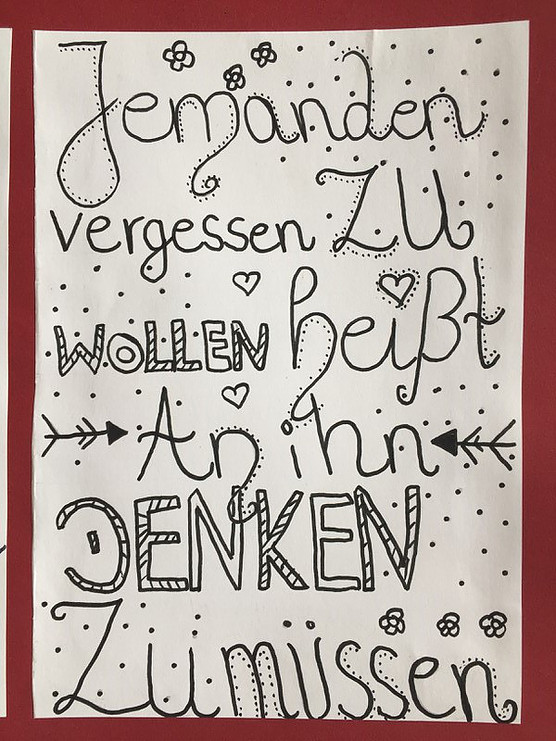 Jemanden
vergessen ZU
WOLLEN heißt
An ihn
DENKEN
Zu müssen